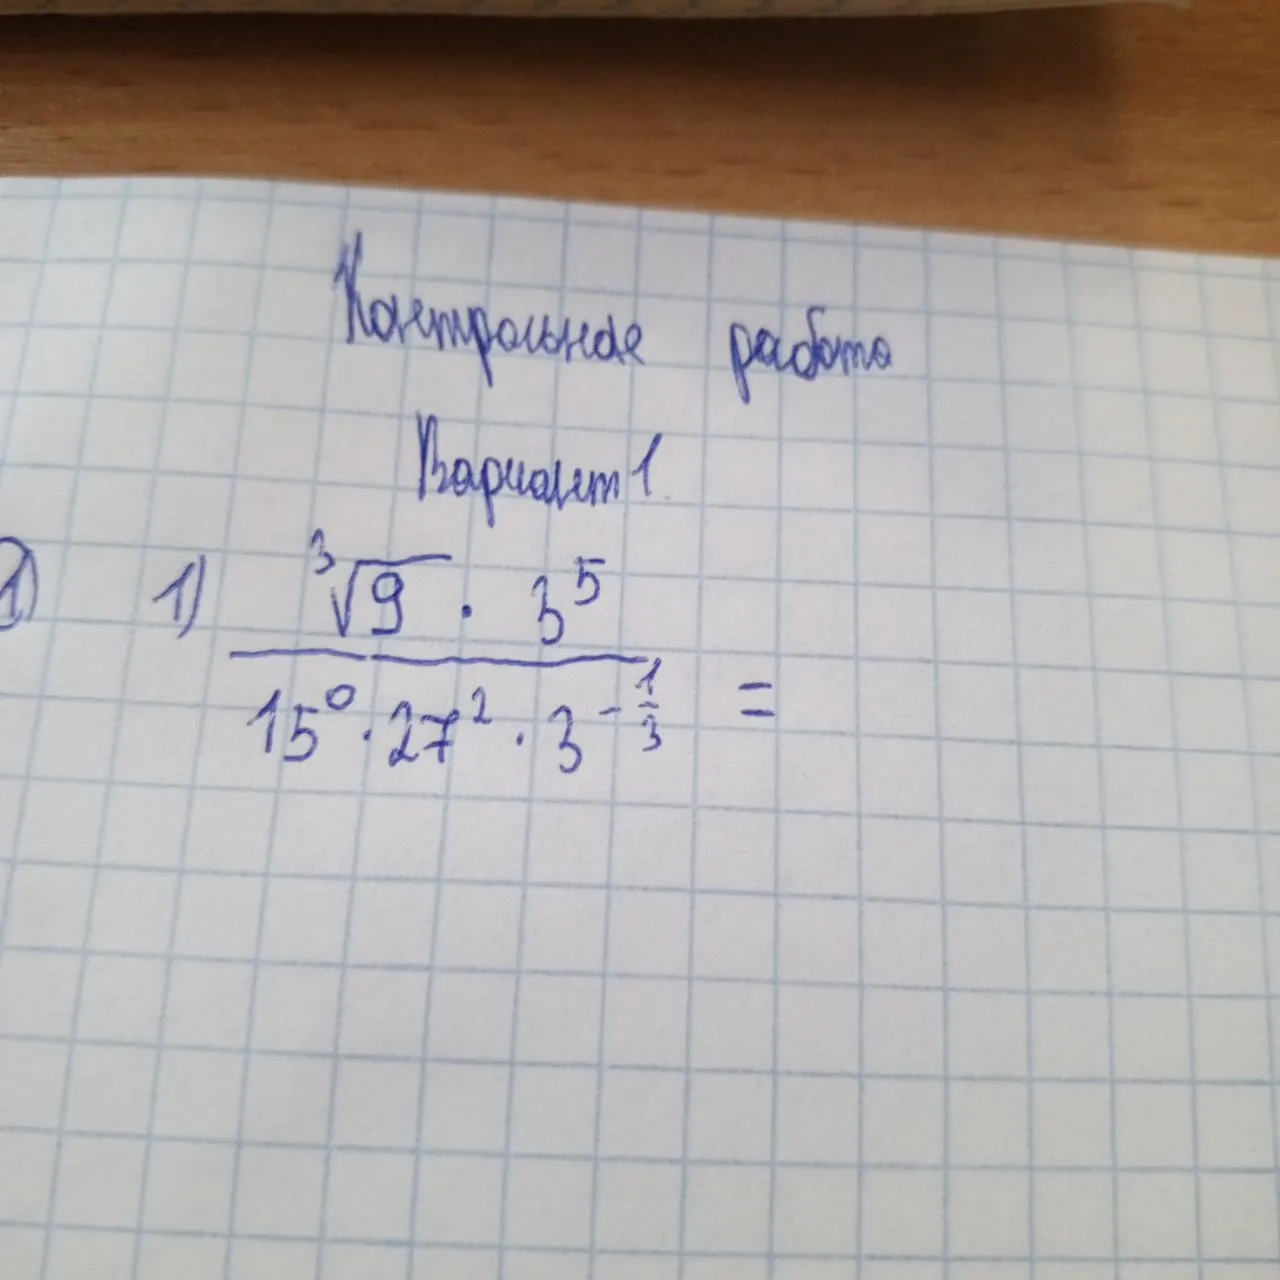 Контрольная работа
Вариант 1.
1) 1) ³√9 · 3⁵
15⁰ · 27² · 3^(-1/3) =